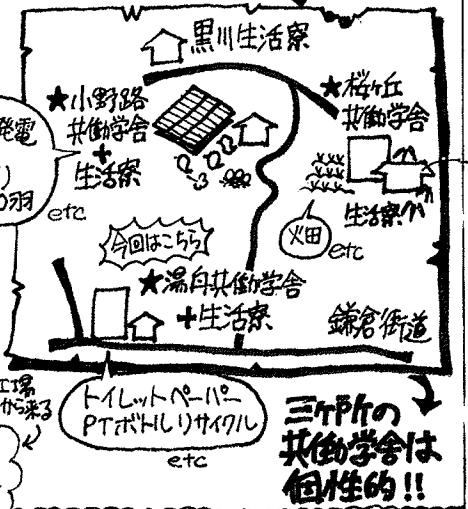 黒川生活寮
★小野路
共働学舎
+
生活寮
etc
発電
0羽
★桜ヶ丘
共働学舎
生活寮
畑
etc
今回はこちら
★湯舟共働学舎
+生活寮
鎌倉街道
工場
から来る
トイレットペーパー
PTボトルリサイクル
etc
三ヶ所の
共働学舎は
個性的!!